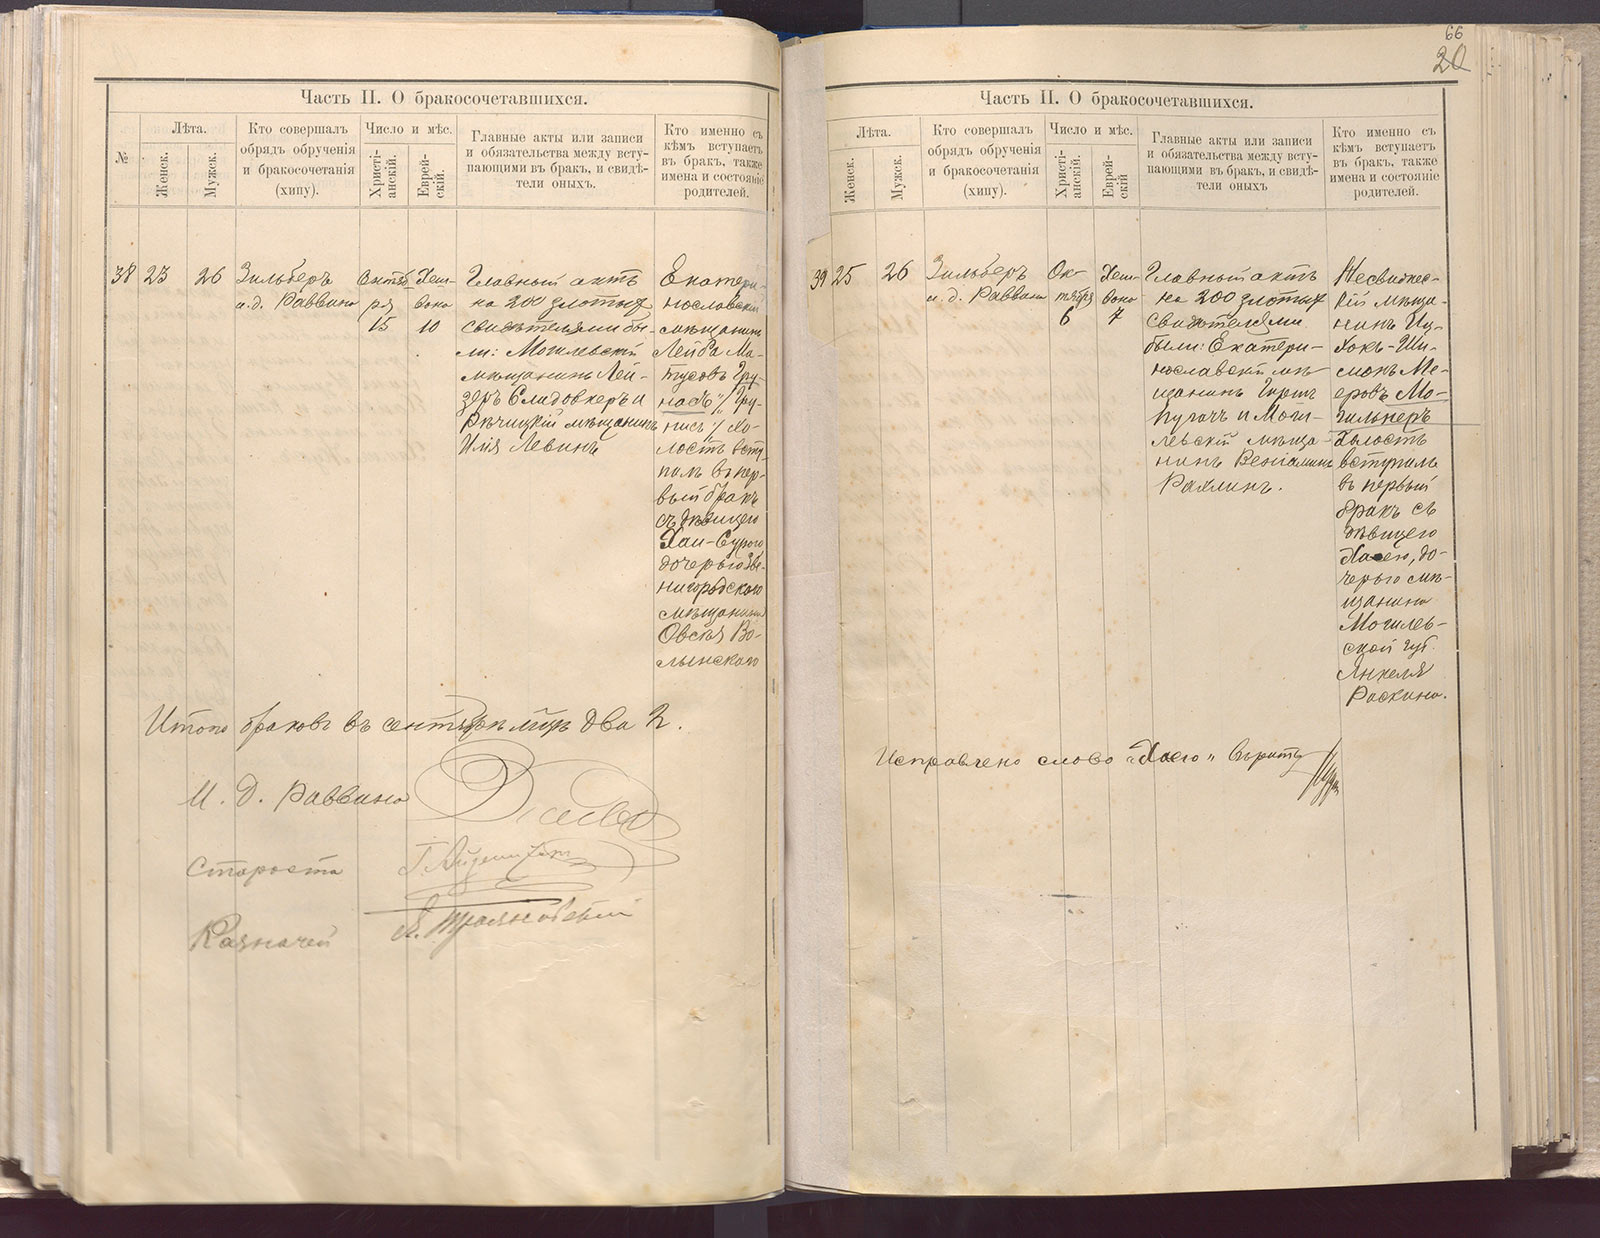 Часть II. О бракосочетавшихся.
№
Лѣта.
Женск.
Мужск.
Кто совершалъ
обрядъ обрученія
и бракосочетанія
(хипу).
Число и мѣс.
Христі-
анскій.
Еврей-
скій.
Главные акты или записи
и обязательства между всту-
пающими въ бракъ, и свидѣ-
тели оныхъ.
Кто именно съ
кѣмъ вступаетъ
въ бракъ, также
имена и состояніе
родителей.
38
23
26
Зильберъ
и. д. Раввина
Октяб
ря
15
Хеш-
вона
10
Главный актъ
на 200 злотых
свидѣтелями бы-
ли: Могилевскій
мѣщанинъ Лей-
зеръ Сладовкеръ и
Рѣчицкій мѣщанинъ
Илія Левинъ
Екатери-
нославскій
мѣщанинъ
Лейба Ма-
тусовъ Гру
насъ "/ Гру-
нисъ "/ хо-
лостъ всту
пилъ въ пер-
вый бракъ
съ дѣвицею
Хаи-Сурою
дочерью Зве-
нигородского
мѣщанина
Овсѣя Во-
лынского
Итого браковъ въ сентябрѣ мцѣ два 2.
И. Д. Раввина
Староста
Казначей
66
20
Часть II. О бракосочетавшихся.
Лѣта.
Женск.
Мужск.
Кто совершалъ
обрядъ обрученія
и бракосочетанія
(хипу).
Число и мѣс.
Христі-
анскій.
Еврей-
скій
Главные акты или записи
и обязательства между всту-
пающими въ бракъ, и свидѣ-
тели оныхъ
Кто именно съ
кѣмъ вступаетъ
въ бракъ, также
имена и состояніе
родителей.
39
25
26
Зильберъ
и. д. Раввина
Ок-
тября
6
Хеш-
вона
7
Главный актъ
на 200 злотых
свидѣтелями
были: Екатери-
нославскій мѣ
щанинъ Гирш
Кугачъ и Моги-
левскій мѣща
нинъ Веніаминъ
Рахлинъ.
Несвижес-
кій мѣща-
нинъ Иц-
хокъ-Ши-
монъ Ме-
еровъ Мо-
гильнеръ
Холостъ
вступилъ
въ первый
бракъ съ
дѣвицею
Хасею, до-
черью мѣ-
щанина
Могилев-
ской губ.
Янкеля
Раскина.
Исправлено слово "Хасею" вѣрить